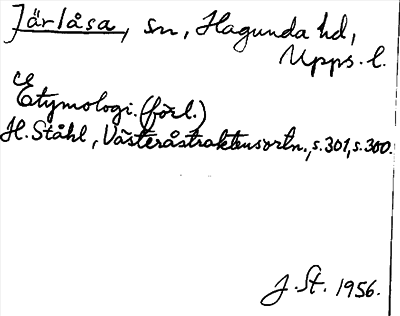 Järlåsa, sn, Hagunda hd,
Upps. l.
Etymologi. (förl.)
H. Ståhl, Västeråstraktens ortn., s. 301, s. 300.
J. St. 1956.